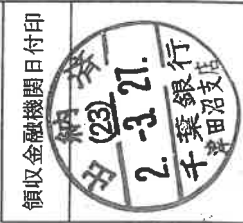 領収金融機関日付印
出納済
(23)
2.-3.27.
千葉銀行
津田沼支店